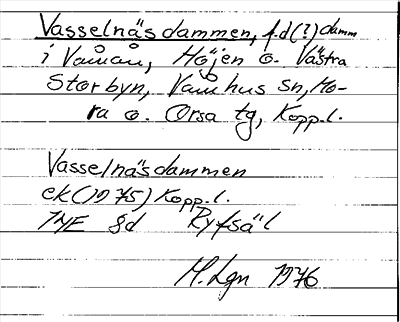 Vasselnäsdammen, f.d(?) damm
i Våmån, Höjen o. Västra
Storbyn, Våmhus sn, Mo-
ra o. Orsa tg, Kopp.l.
Vasselnäsdammen
ek(1975) Kopp.l.
gd
M.Lgn 1976